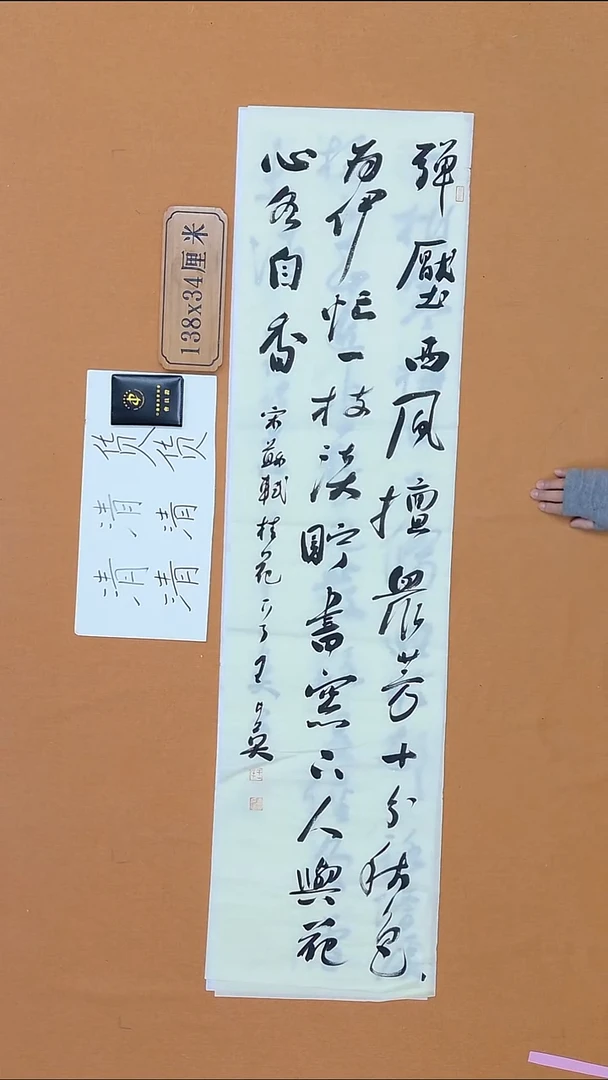 彈壓西風擅眾芳十分秋色
为伊忙一枝淡貯書窓下人與花
心各自香
宋蘇軾桂花
138x34厘米
货 货
清 清
清 清